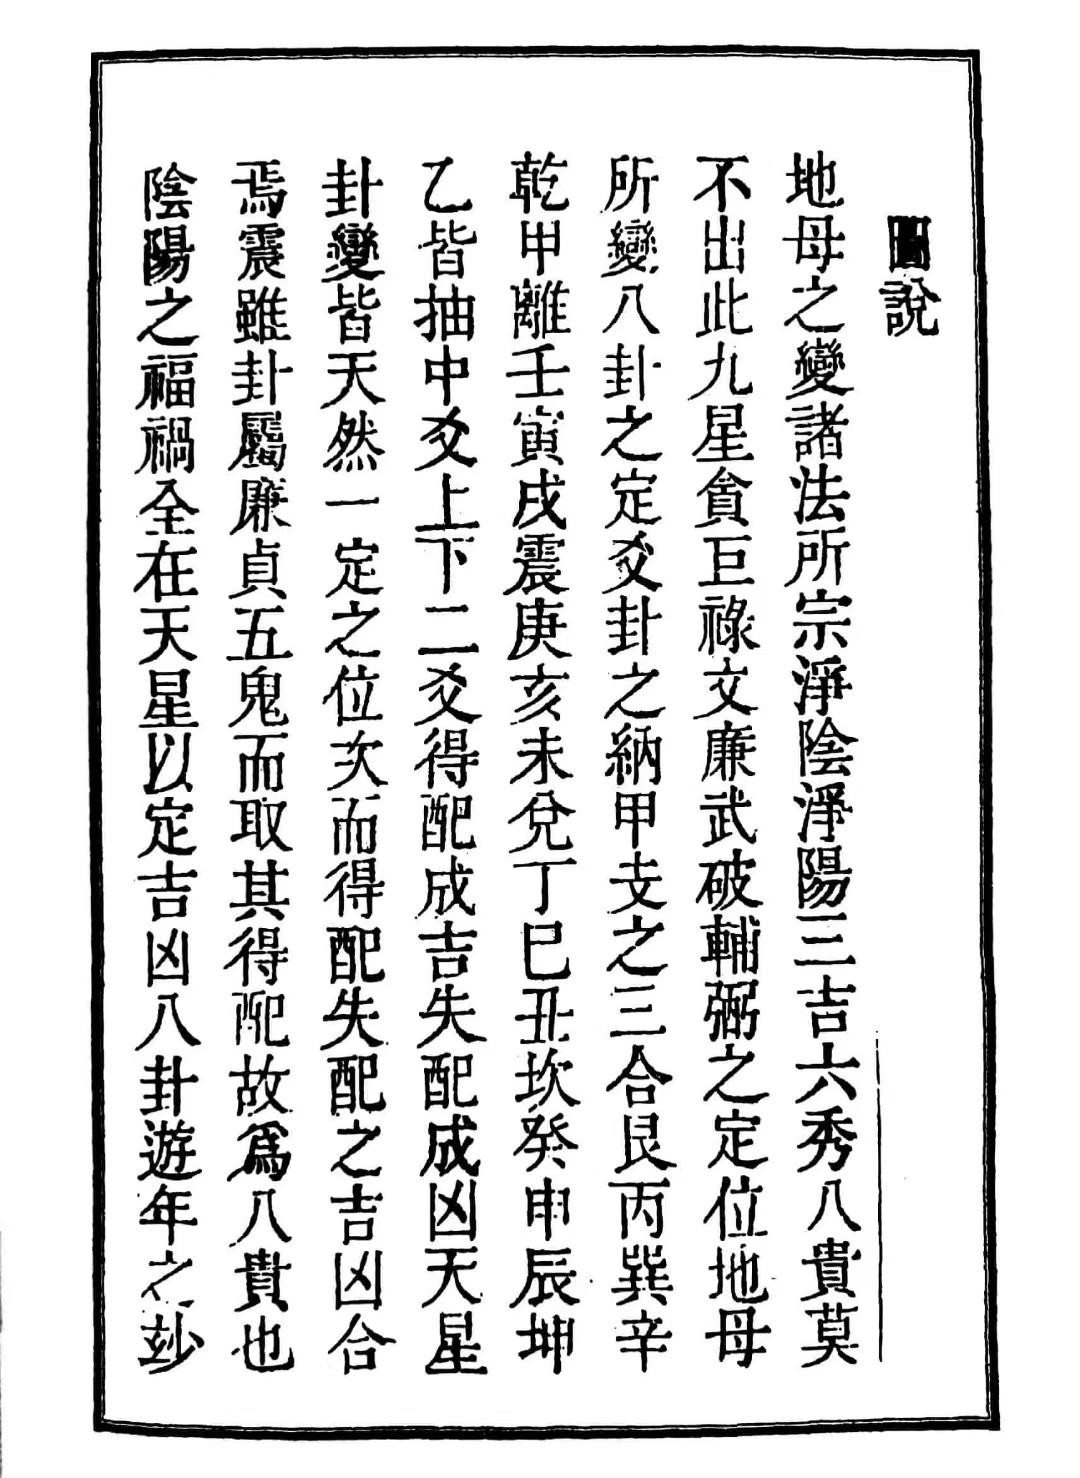 圖說
地母之變諸法所宗淨陰淨陽三吉六秀八貴莫
不出此九星貪巨祿文廉武破輔弼之定位地母
所變八卦之定爻卦之納甲支之三合艮丙巽辛
乾甲離壬寅戌震庚亥未兌丁巳丑坎癸申辰坤
乙皆抽中爻上下二爻得配成吉失配成凶天星
卦變皆天然一定之位次而得配失配之吉凶合
焉震雖卦屬廉貞五鬼而取其得配故爲八貴也
陰陽之福禍全在天星以定吉凶八卦遊年之玅